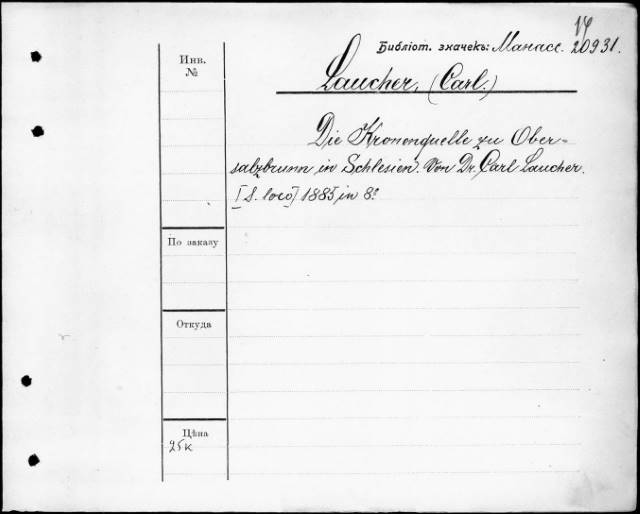 14
Библіот. значекъ: Манасс. 20931.
Инв.
№
Laucher, (Carl.)
Die Kronenquelle zu Ober-
salzbrunn in Schlesien. Von Dr. Carl Laucher.
[S. loco] 1885 in 8º
По заказу
Откуда
Цѣна
25к